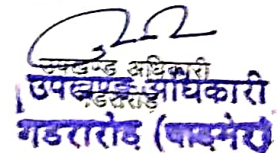 उपखण्ड अधिकारी
गडरारोड
उपखण्ड अधिकारी
गडरारोड (बाड़मेर)